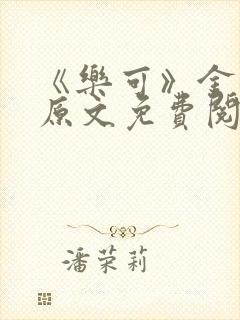 《樂可》金
原文免費閱
潘荣莉